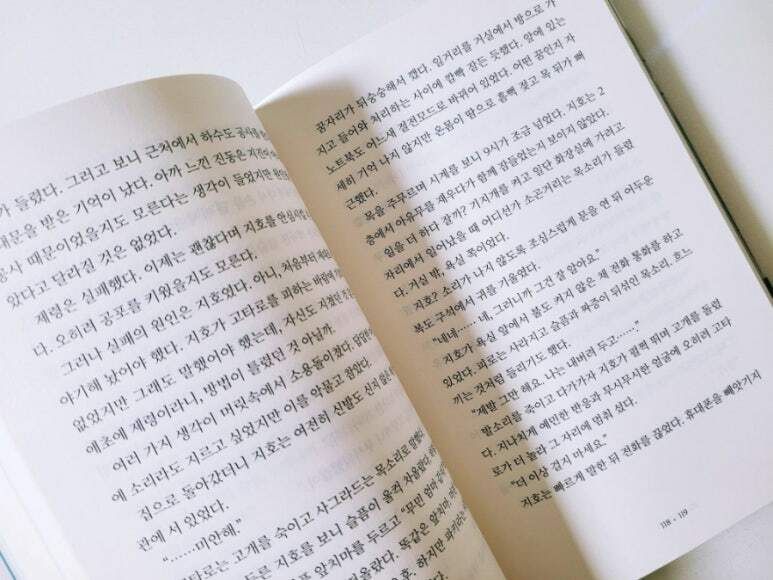 가 들렸다. 그러고 보니 근처에서 하수도 공사를
대문을 받은 기억이 났다. 아까 느낀 진동은 지진이
공사 때문이었을지도 모른다는 생각이 들었지만
았다고 달라질 것은 없었다.
제령은 실패했다. 이제는 괜찮다며 지호를 안심
다. 오히려 공포를 키웠을지도 모른다.
그러나 실패의 원인은 지호였다. 아니, 처음부터
야기해 봤어야 했다. 지호가 고타로를 피하는
없었지만 그래도 말했어야 했는데, 자신도
애초에 제령이라니, 방법이 틀렸던 것 아닐까.
여러 가지 생각이 머릿속에서 소용돌이쳤다.
에 소리라도 지르고 싶었지만 이를 악물고 참았다.
집으로 돌아갔더니 지호는 여전히 신발도
관에 서 있었다.
“……미안해.”
고타로는 고개를 숙이고 사그라드는 목소리로
지호를 보니 슬픔이 울컥 차올랐다.
앞치마를 두르고 “무민 엄마
똑같은 앞치마
하지만
꿈자리가 뒤숭숭해서 깼다. 일거리를 거실에서 방으로 가
지고 들어와 처리하는 사이에 깜빡 잠든 듯했다. 앞에 있는
노트북도 어느새 절전모드로 바뀌어 있었다. 어떤 꿈인지 자
세히 기억 나지 않지만 온몸이 땀으로 흠뻑 젖고 목 뒤가 뻐
근했다.
목을 주무르며 시계를 보니 9시가 조금 넘었다. 지호는 2
층에서 아유무를 재우다가 함께 잠들었는지 보이지 않았다.
일을 더 하다 잘까? 기지개를 켜고 일단 화장실에 가려고
자리에서 일어났을 때 어디선가 소곤거리는 목소리가 들렸
다. 거실 밖, 욕실 쪽이었다.
지호? 소리가 나지 않도록 조심스럽게 문을 연 뒤 어두운
복도 구석에서 귀를 기울였다.
“네네…… 네, 그러니까 그건 잘 알아요.”
지호가 욕실 앞에서 불도 켜지 않은 채 전화 통화를 하고
있었다. 피로는 사라지고 슬픔과 짜증이 뒤섞인 목소리. 흐느
끼는 것처럼 들리기도 했다.
“제발 그만 해요. 나는 내버려 두고…….”
발소리를 죽이고 다가가자 지호가 펄쩍 뛰며 고개를 돌렸
다. 지나치게 예민한 반응과 무시무시한 얼굴에 오히려 고타
로가 더 놀라 그 자리에 멈춰 섰다.
“더 이상 걸지 마세요.”
지호는 빠르게 말한 뒤 전화를 끊었다. 휴대폰을 빼앗기지
118 • 119